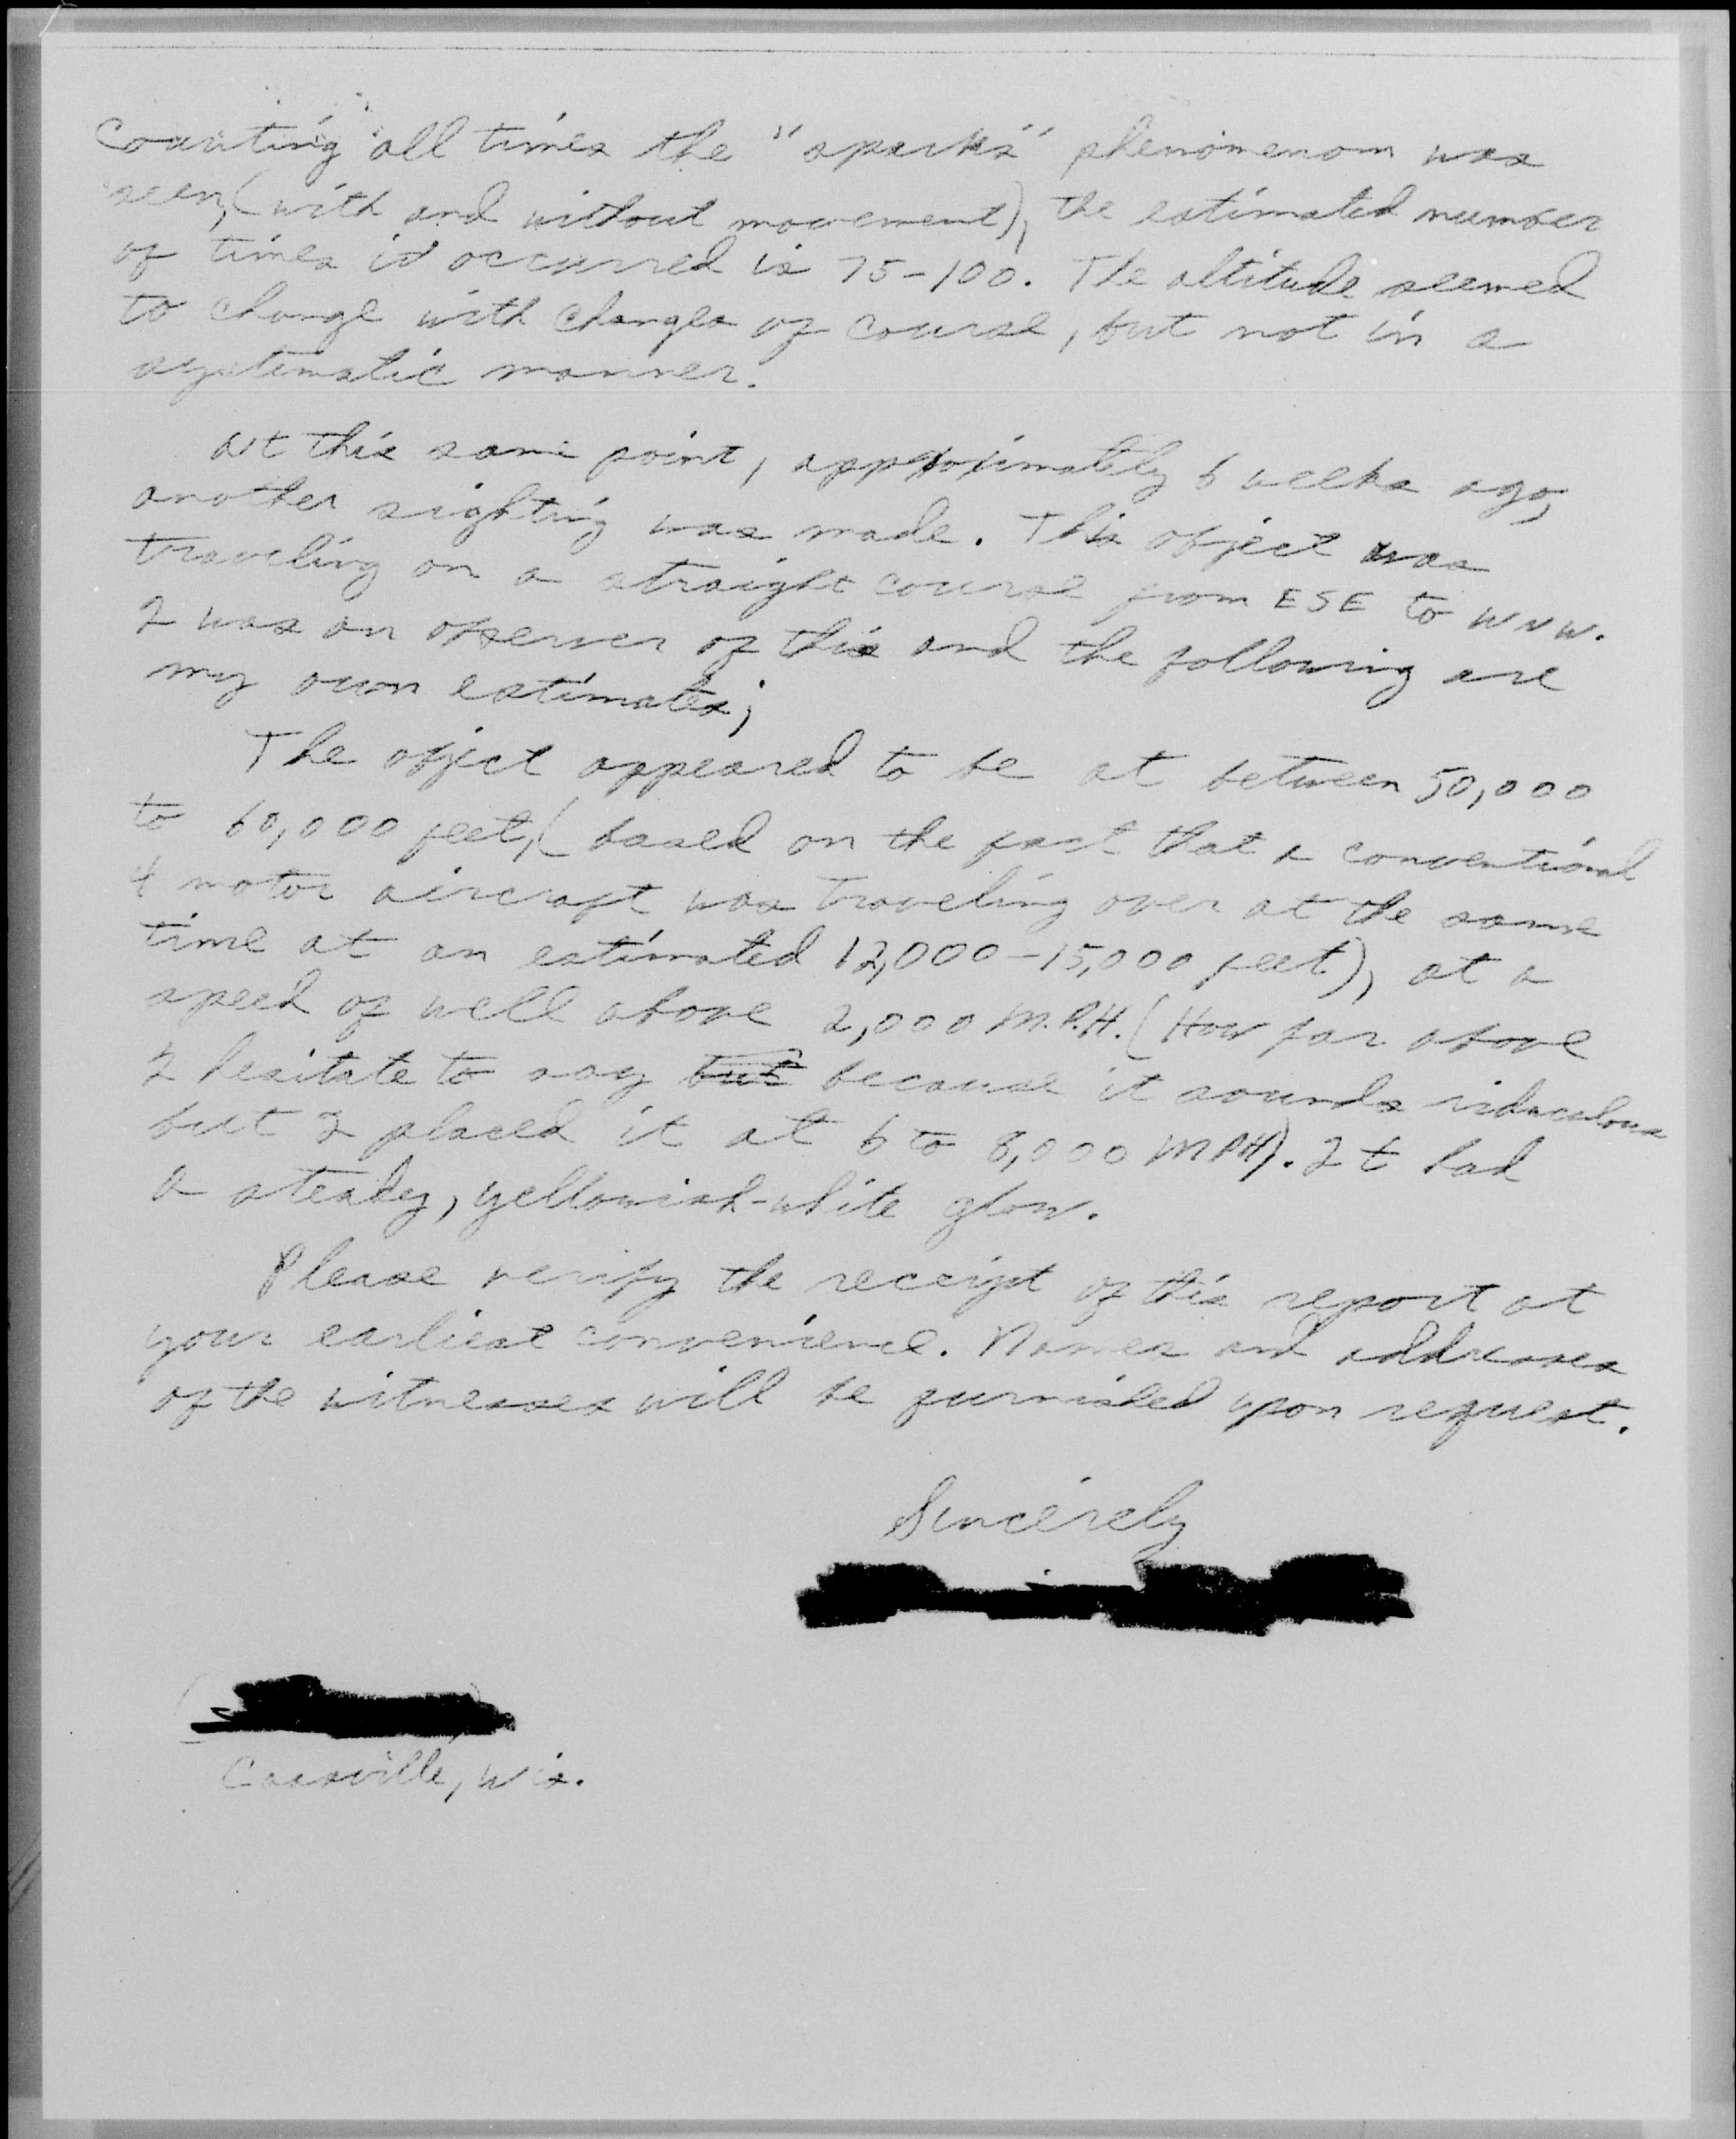 Counting all times the "sparks" phenomenom was
seen, (with and without movement), the estimated number
of times it occurred is 75-100. The altitude seemed
to change with changes of course, but not in a
systematic manner.
At this same point, approximately 6 weeks ago,
another sighting was made. This object was
traveling on a straight course from ESE to WNW.
I was an observer of this and the following are
my own estimates;
The object appeared to be at between 50,000
to 60,000 feet, (based on the fact that a conventional
4 motor aircraft was traveling over at the same
time at an estimated 12,000-15,000 feet), at a
speed of well above 2,000 M.P.H. (How far above
I hesitate to say but because it sounds ridiculous
but I placed it at 6 to 8,000 MPH). It had
a steady, yellowish-white glow.
Please verify the receipt of this report at
your earliest convenience. Names and addresses
of the witnesses will be furnished upon request.
Sincerely
Cassville, Wis.